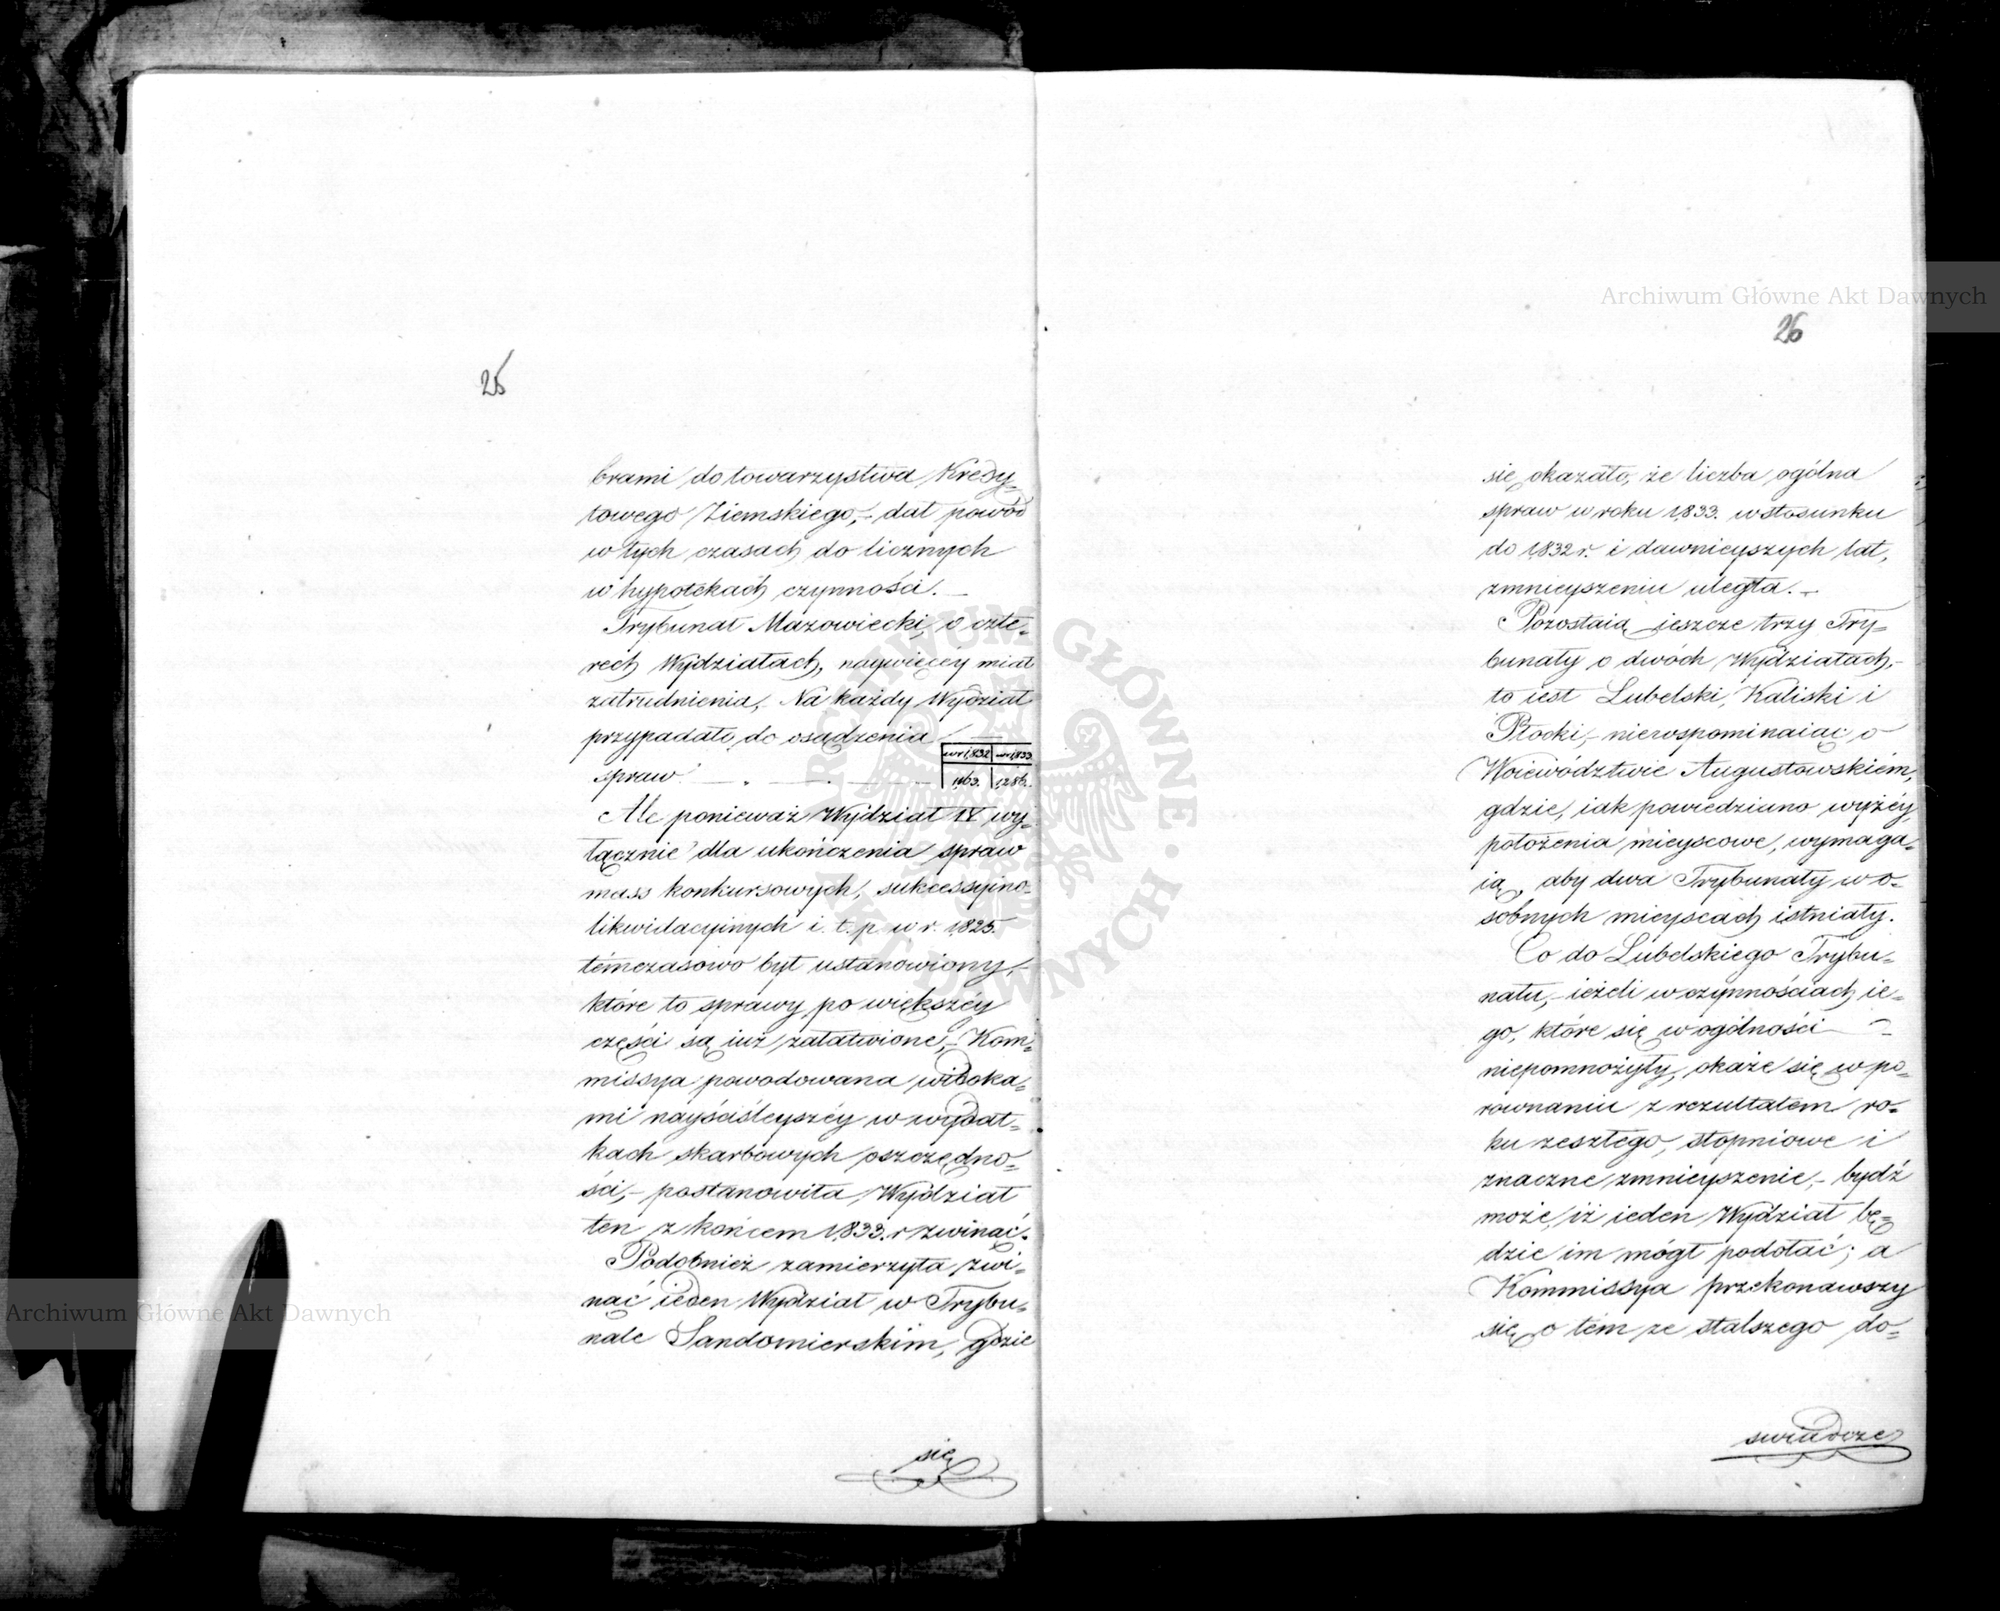 25
brami do towarzystwa Kredy-
towego Ziemskiego, - dał powód
w tych czasach do licznych
w hypotekach czynności. -
Trybunał Mazowiecki, o czte-
rech Wydziałach, naywięcéy miał
zatrudnienia. Na każdy Wydział
przypadało do osądzenia
w r. 1832 w r. 1833
spraw
Ale ponieważ Wydział IV wy-
łącznie dla ukończenia spraw
mass konkursowych, sukcessyino-
likwidacyinych i. t. p. w r. 1825.
témczasowo był ustanowiony, -
które to sprawy po większéy
części są iuż załatwione, - Kom-
missya powodowana widoka-
mi nayściśleyszéy w wydat-
kach skarbowych oszczędno-
ści, - postanowiła Wydział
ten z końcem 1833. r zwinąć.
Podobnież zamierzyła zwi-
nąć ieden Wydział w Trybu-
nale Sandomierskim, gdzie
się
26
się okazało, że liczba ogólna
spraw w roku 1833. w stosunku
do 1832 r. i dawnieyszych lat,
zmnieyszeniu uległa. -
Pozostaią ieszcze trzy Try-
bunały o dwóch Wydziałach, -
to iest Lubelski, Kaliski i
Płocki, - niewspominaiąc o
Woiewództwie Augustowskiém,
gdzie, iak powiedziano wyżéy,
położenia mieyscowe, wymaga-
ią, aby dwa Trybunały w o-
sobnych mieyscach istniały.
Co do Lubelskiego Trybu-
nału, - ieżeli w czynnościach ie-
go, które się w ogólności
niepomnożyły, okaże się w po-
równaniu z rezultatem ro-
ku zeszłego, stopniowe i
znaczne zmnieyszenie, - bydź
może, iż ieden Wydział bę-
dzie im mógł podołać; a
Kommissya przekonawszy
się o tém ze stalszego do-
świadcze
Archiwum Główne Akt Dawnych
Archiwum Główne Akt Dawnych
ARCHIWUM GŁÓWNE AKT DAWNYCH